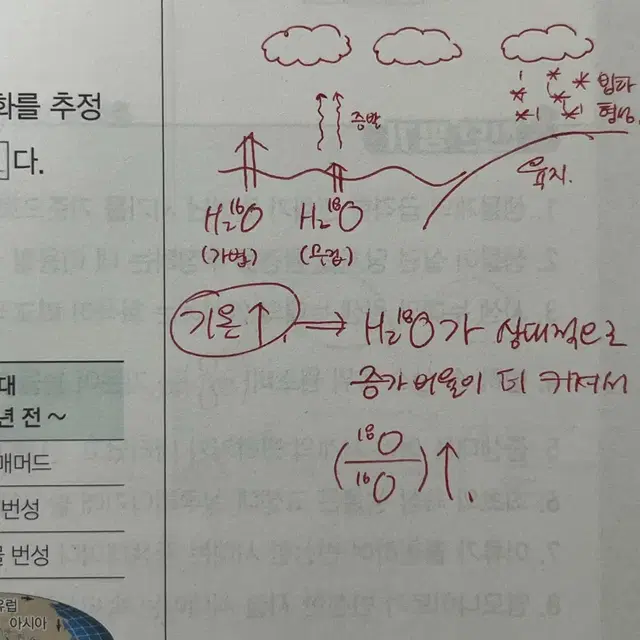 화를 추정
다.
대
년 전 ~
매머드
번성
물 번성
유럽
아시아
증발
빙하
형성
육지.
H₂¹⁶O H₂¹⁸O
(가볍) (무겁)
기온↑ ⇒ H₂¹⁸O가 상대적으로
증가 비율이 더 커져서
(¹⁸O/¹⁶O)↑.